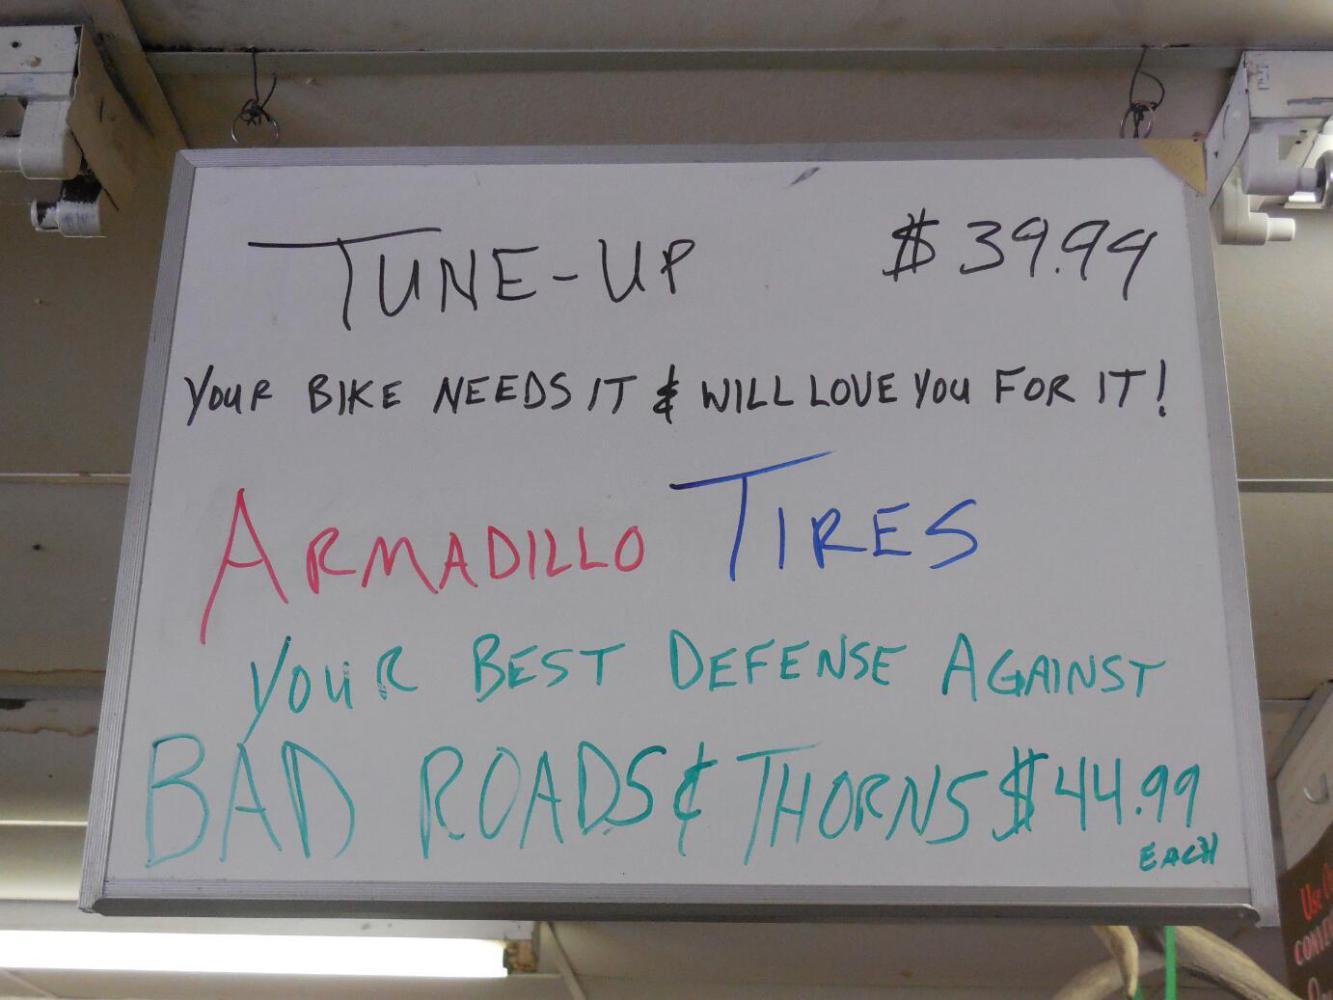 TUNE-UP $39.99
YOUR BIKE NEEDS IT & WILL LOVE YOU FOR IT!
ARMADILLO TIRES
YOUR BEST DEFENSE AGAINST
BAD ROADS & THORNS $44.99
EACH
Use